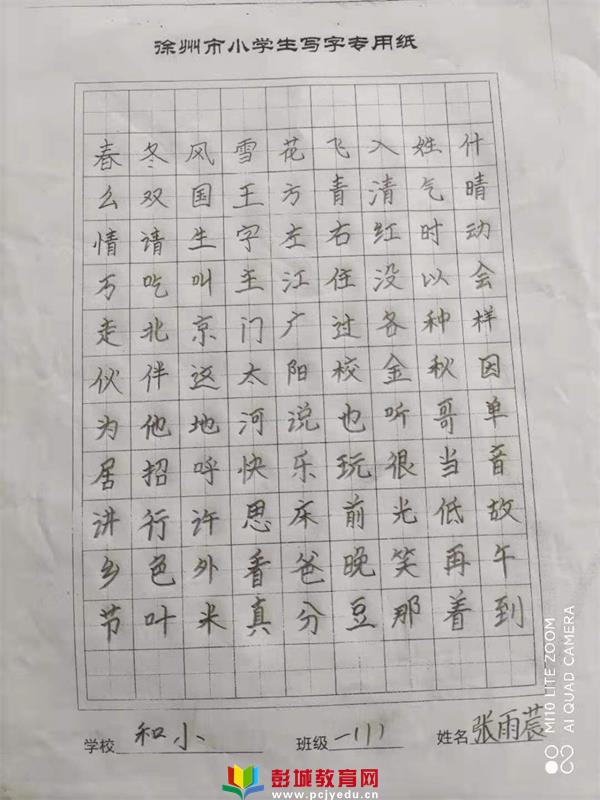 徐州市小学生写字专用纸
春冬风雪花飞入姓什
么双国王方青清气晴
情请生字左右红时动
万吃叫主江住没以会
走北京门广过各种样
伙伴这太阳校金秋因
为他地河说也听哥单
居招呼快乐玩很当音
讲行许思床前光低故
乡色外看爸晚笑再午
节叶米真分豆那着到
学校 和小 班级 一(1) 姓名 张雨
彭城教育网
www.pcjyedu.cn
MI 10 LITE ZOOM
AI QUAD CAMERA